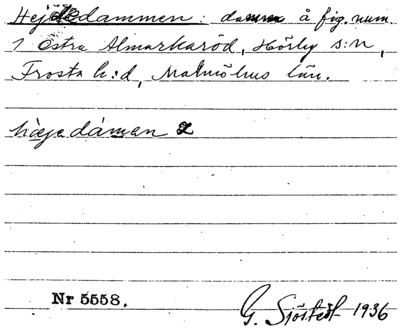 Hejdedammen: damm å fig. num.
1 Östra Almarkaröd, Hörby s:n,
Frosta h:d, Malmöhus län.
hæjedámen 2
Nr 5558.
G. Sjöstedt 1936